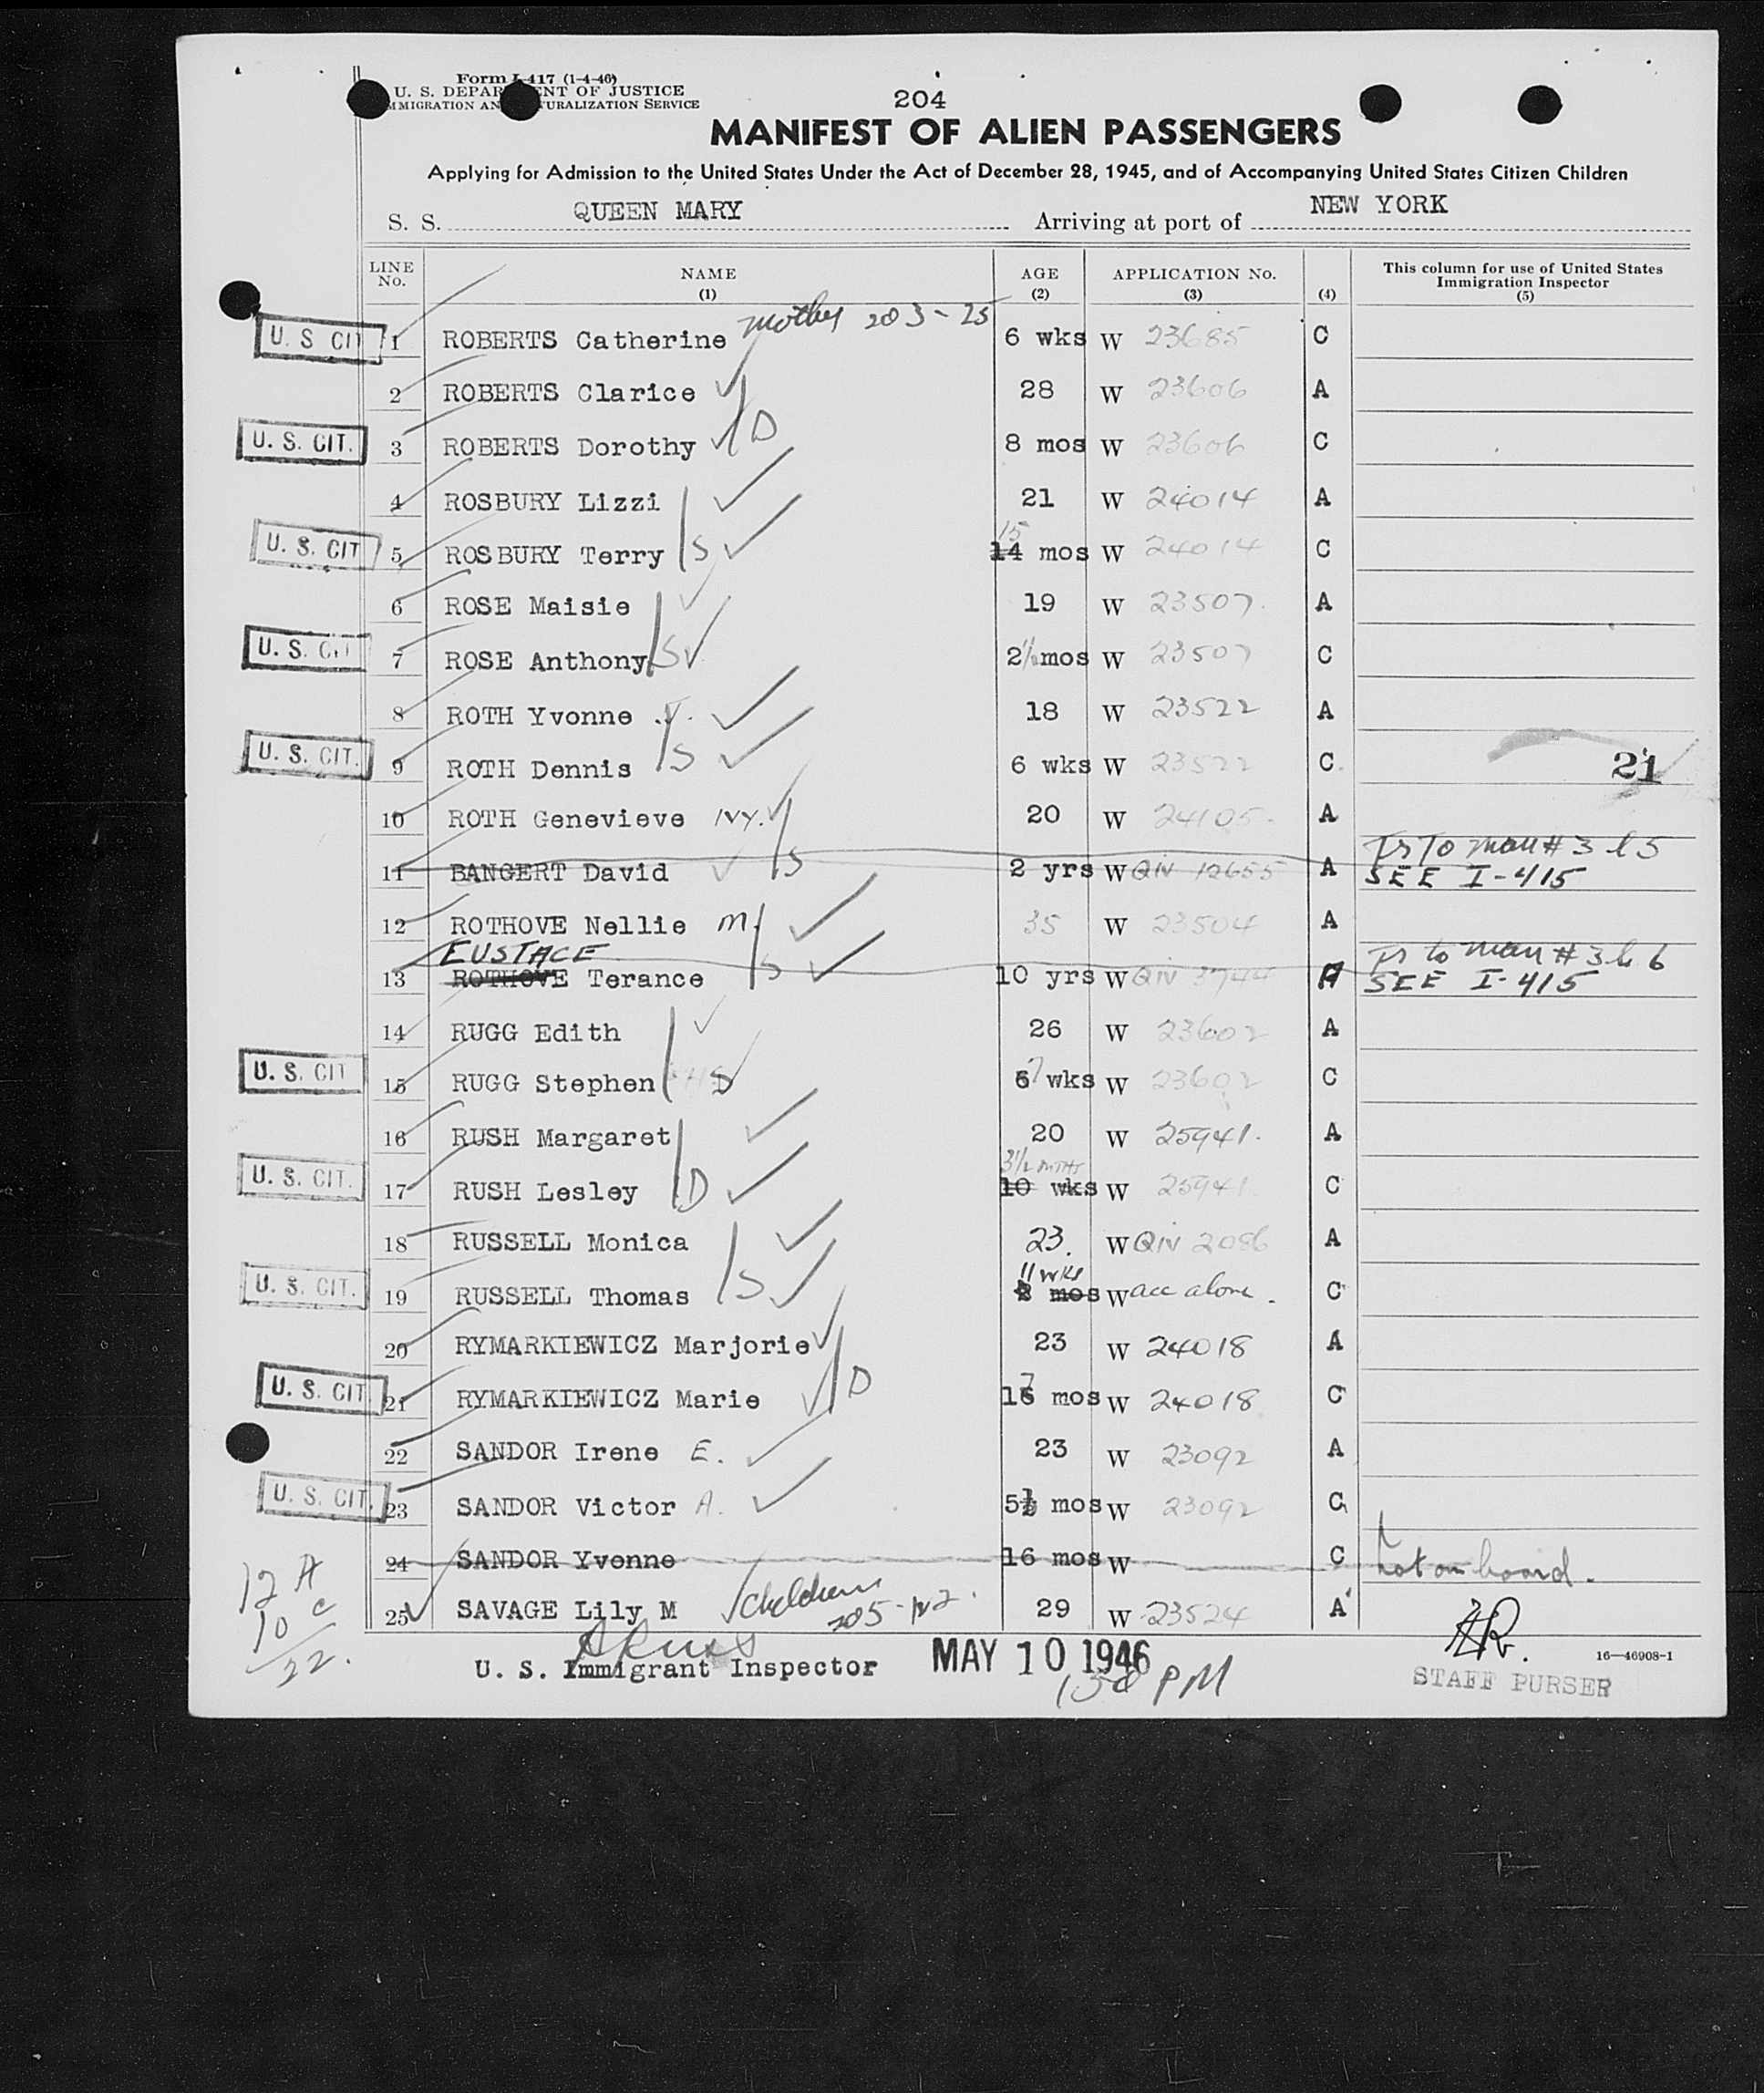 Form I-417 (1-4-46)
U. S. DEPARTMENT OF JUSTICE
IMMIGRATION AND NATURALIZATION SERVICE
204
MANIFEST OF ALIEN PASSENGERS
Applying for Admission to the United States Under the Act of December 28, 1945, and of Accompanying United States Citizen Children
S. S. QUEEN MARY Arriving at port of NEW YORK
LINE No. NAME (1) AGE (2) APPLICATION No. (3) (4) This column for use of United States Immigration Inspector (5)
U. S CIT 1 ROBERTS Catherine mother 203-25 6 wks W 23685 C
2 ROBERTS Clarice 28 W 23606 A
U. S. CIT. 3 ROBERTS Dorothy D 8 mos W 23606 C
4 ROSBURY Lizzi 21 W 24014 A
U. S. CIT 5 ROSBURY Terry S 15 14 mos W 24014 C
6 ROSE Maisie 19 W 23507. A
U. S. CIT 7 ROSE Anthony S 2 1/2 mos W 23507 C
8 ROTH Yvonne .Y. 18 W 23522 A
U. S. CIT. 9 ROTH Dennis S 6 wks W 23522 C. 21
10 ROTH Genevieve IVY. 20 W 24105. A
11 BANGERT David S 2 yrs W QIV 12655 A Trs To man # 3 l 5
SEE I-415
12 ROTHOVE Nellie M. 35 W 23504 A
EUSTACE
13 ROTHOVE Terance S 10 yrs W QIV 3744 A Trs to man # 3 l 6
SEE I-415
14 RUGG Edith 26 W 23602 A
U. S. CIT 15 RUGG Stephen D 6 7 wks W 23602 C
16 RUSH Margaret 20 W 25941. A
U. S. CIT. 17 RUSH Lesley D 3 1/2 mths 10 wks W 25941. C
18 RUSSELL Monica 23. W QIV 2086 A
U. S. CIT. 19 RUSSELL Thomas S 11 wks 2 mos W acc above. C
20 RYMARKIEWICZ Marjorie 23 W 24018 A
U. S. CIT 21 RYMARKIEWICZ Marie D 17 mos W 24018 C
22 SANDOR Irene E. 23 W 23092 A
U. S. CIT. 23 SANDOR Victor A. 5½ mos W 23092 C
24 SANDOR Yvonne 16 mos W C not on board.
25 SAVAGE Lily M Children 205-1&2. 29 W 23524 A
12 A
10 C
22.
U. S. Immigrant Inspector MAY 10 1946 HR.
16—46908-1
PM STAFF PURSER